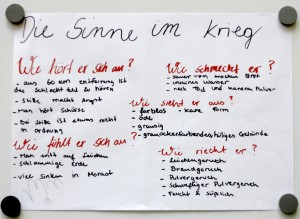 Die Sinne im Krieg
Wie hört er sich an?
- aus 60 km entfernung ist
das Schlachtfeld zu hören
- stille macht Angst
- Man hört Schüsse
- Bei stille ist etwas nicht
in ordnung
Wie fühlt er sich an?
- Man tritt auf Leichen
- schlammige Erde
- viel sinken in Morast
Wie schmeckt er?
- sauer vom trocken Brot
- nach Tod und
Wie sieht er aus?
- farblos - keine Form
- öde
- grausig
- hügeliges Gelände
Wie riecht er?
- Leichengeruch
- Brandgeruch
- Pulvergeruch
- Schwefliger Pulvergeruch
- Feucht & süßlich